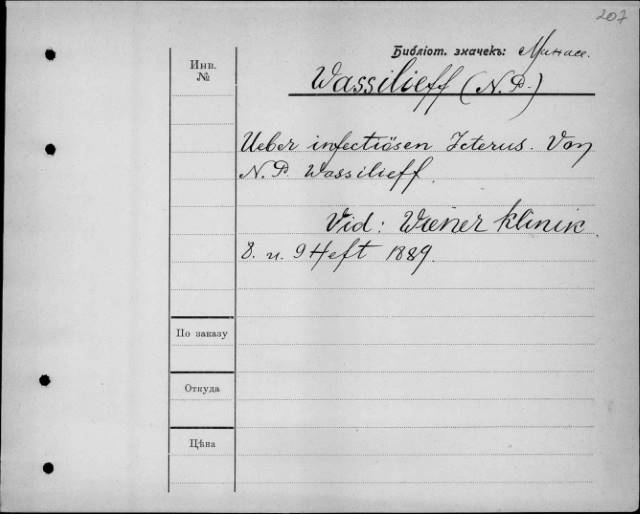 207
Библіот. значекъ:
Инв.
№
Wassilieff (N. P.)
Ueber infectiösen Icterus. Von
N. P. Wassilieff.
Vid: Wiener Klinik.
8. u. 9 Heft 1889.
По заказу
Откуда
Цѣна